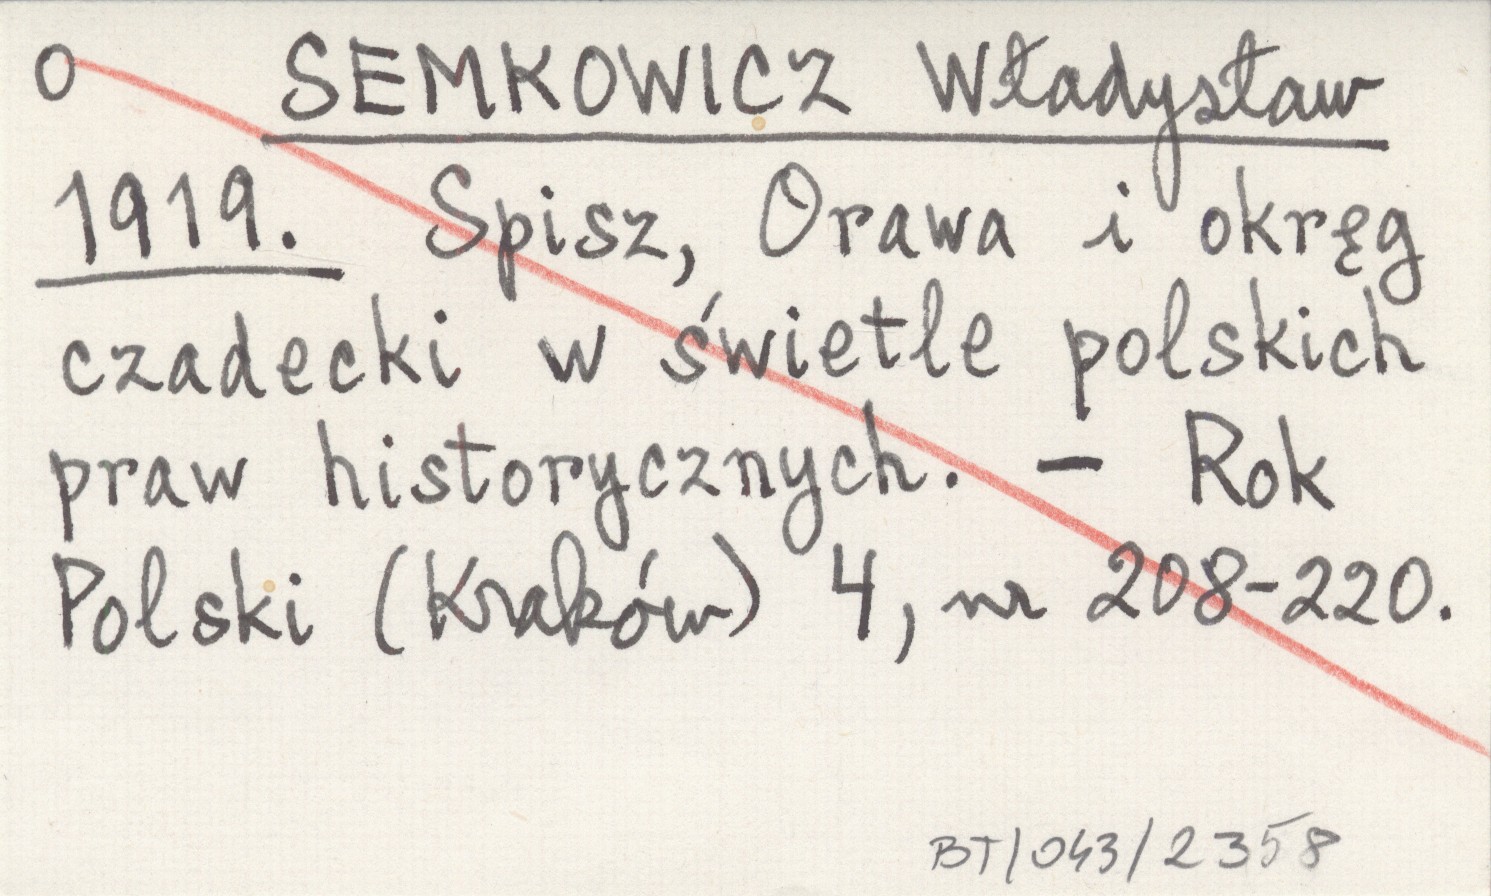 O SEMKOWICZ Władysław
1919. Spisz, Orawa i okręg
czadecki w świetle polskich
praw historycznych. – Rok
Polski (Kraków) 4, nr 208-220.
BT/043/2358